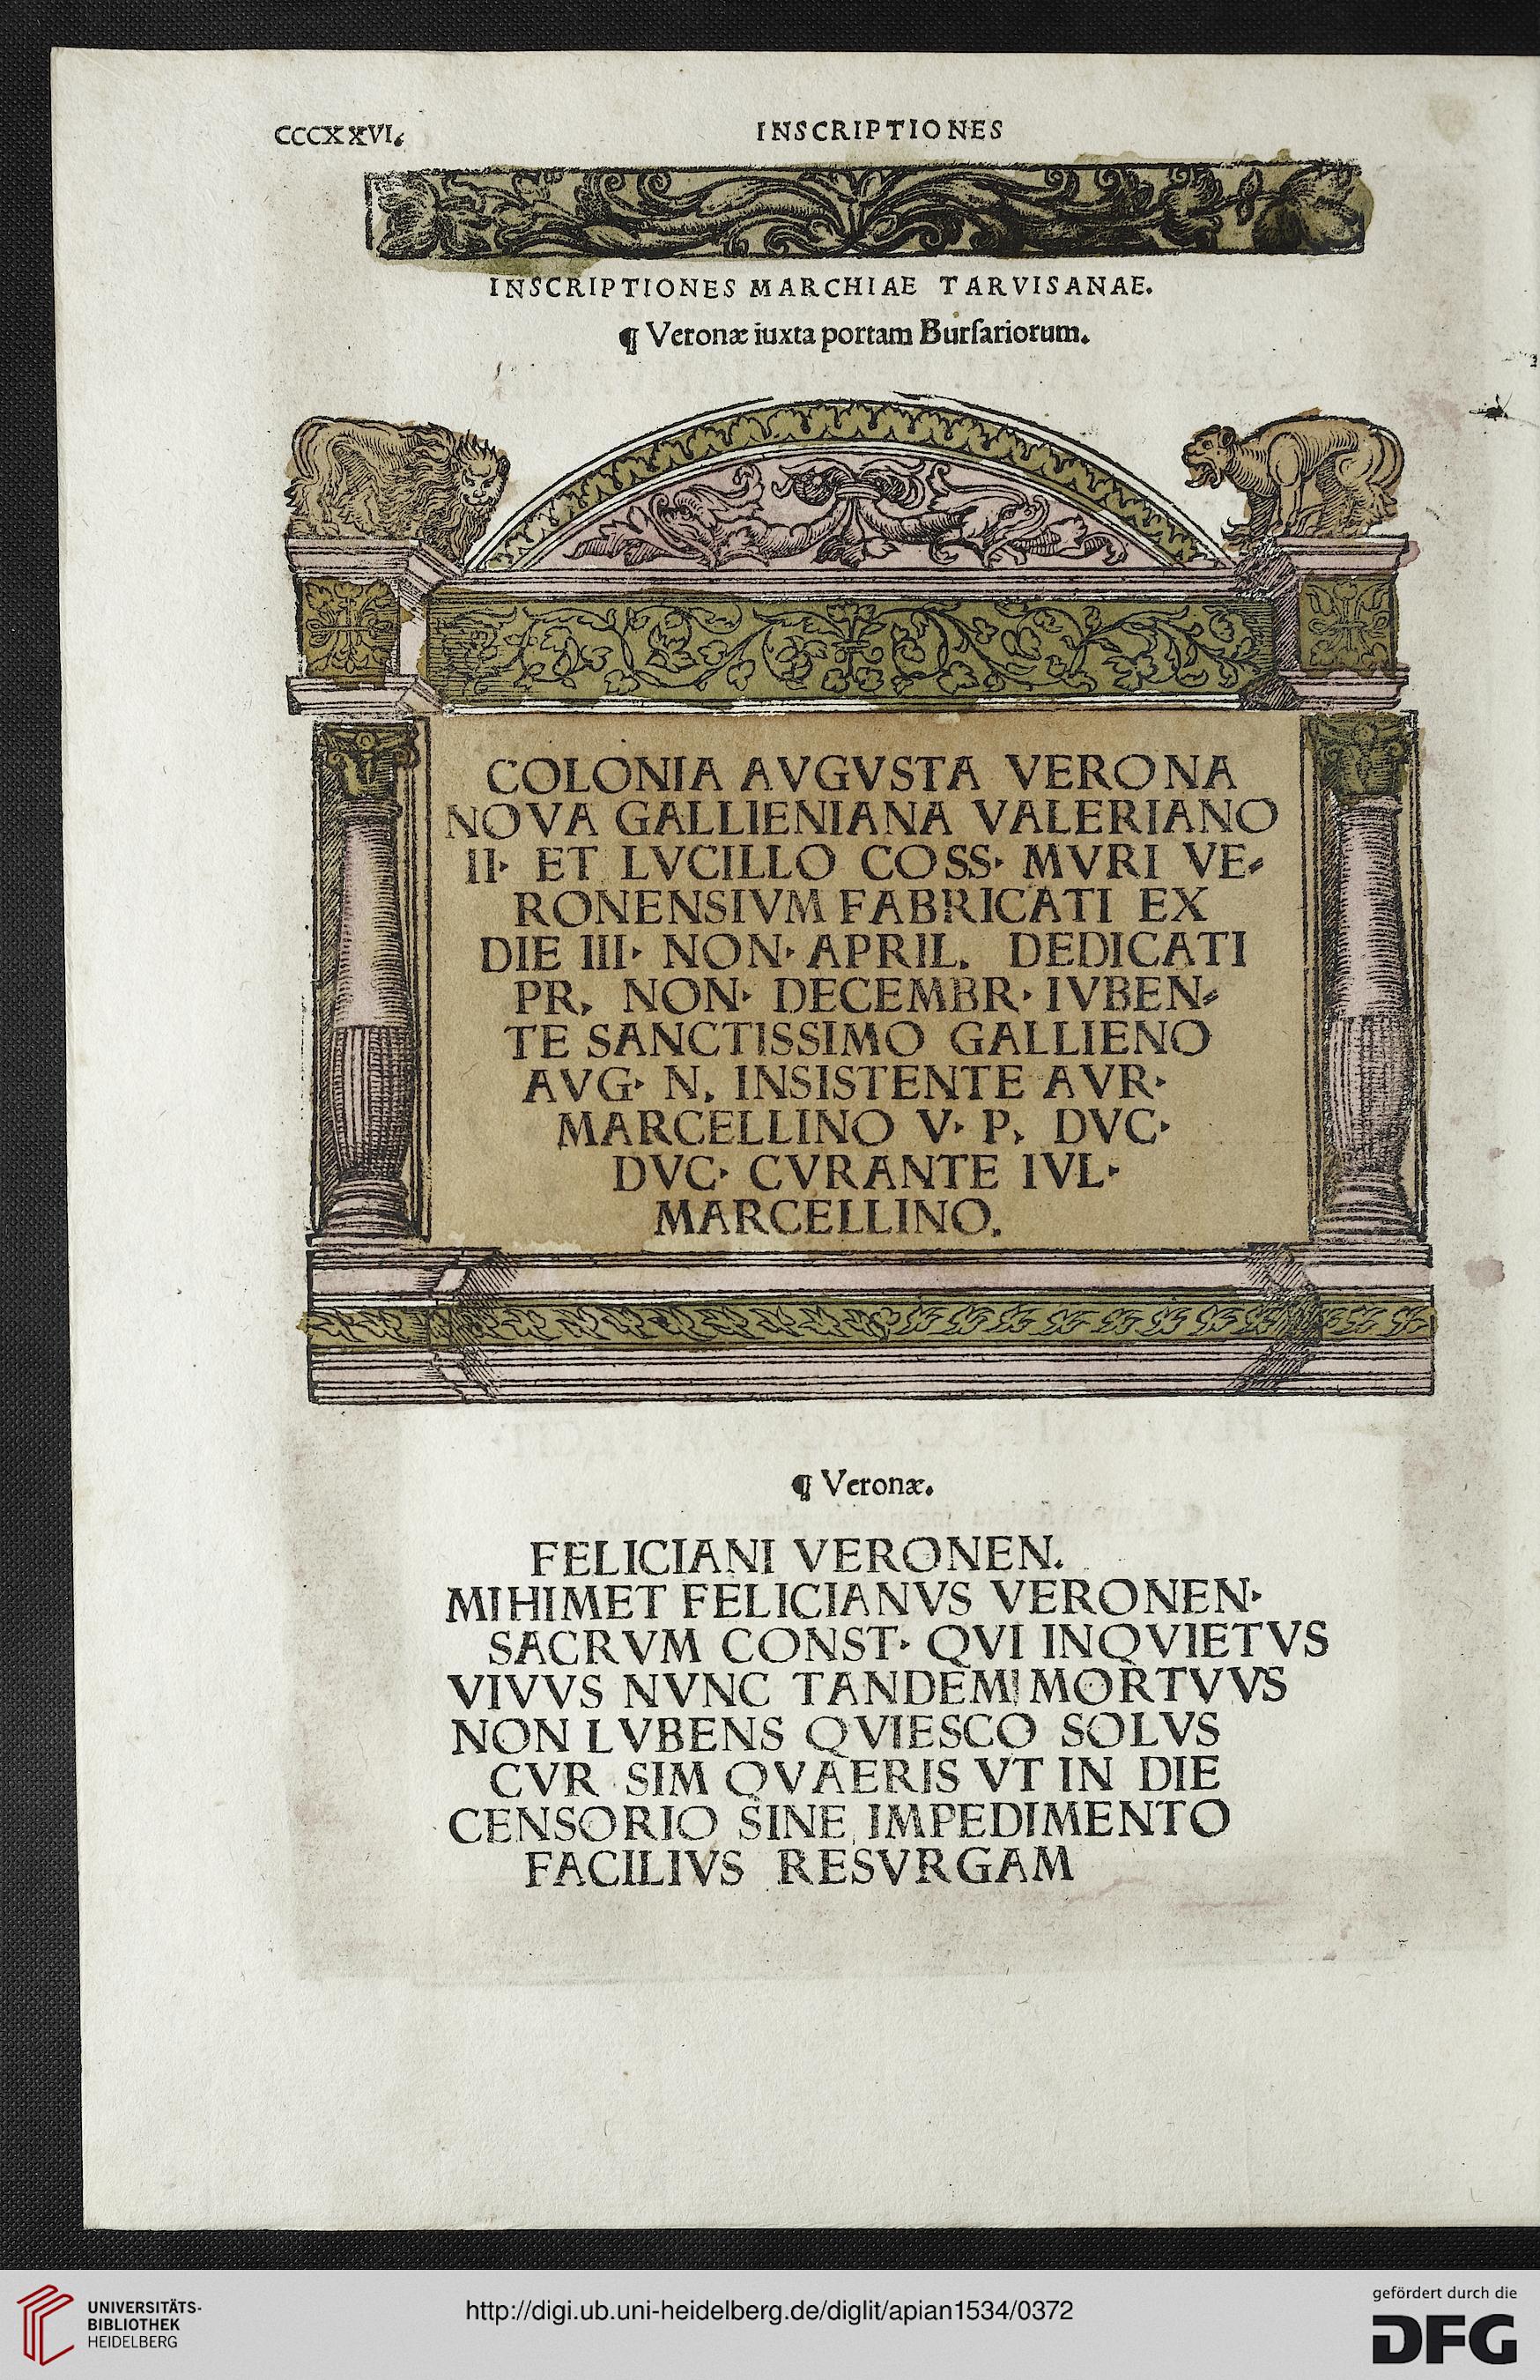 CCCXXVI.
INSCRIPTIONES
INSCRIPTIONES MARCHIAE TARVISANAE.
¶ Veronæ iuxta portam Burſariorum.
COLONIA AVGVSTA VERONA
NOVA GALLIENIANA VALERIANO
II· ET LVCILLO COSS· MVRI VE⸗
RONENSIVM FABRICATI EX
DIE III· NON· APRIL. DEDICATI
PR. NON· DECEMBR· IVBEN⸗
TE SANCTISSIMO GALLIENO
AVG· N. INSISTENTE AVR·
MARCELLINO V· P. DVC·
DVC· CVRANTE IVL·
MARCELLINO.
¶ Veronæ.
FELICIANI VERONEN.
MIHIMET FELICIANVS VERONEN·
SACRVM CONST· QVI INQVIETVS
VIVVS NVNC TANDEM MORTVVS
NON LVBENS QVIESCO SOLVS
CVR SIM QVAERIS VT IN DIE
CENSORIO SINE IMPEDIMENTO
FACILIVS RESVRGAM
UNIVERSITÄTS-
BIBLIOTHEK
HEIDELBERG
http://digi.ub.uni-heidelberg.de/diglit/apian1534/0372
gefördert durch die
DFG